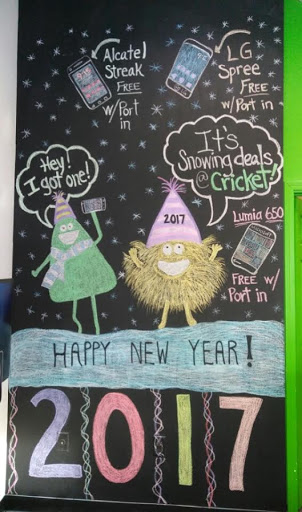 Alcatel
Streak
FREE
w/Port
in
LG
Spree
FREE
w/Port in
Hey!
I got one!
It's
Snowing deals
@ Cricket!
2017
Lumia 650
FREE w/
Port in
HAPPY NEW YEAR!
2017